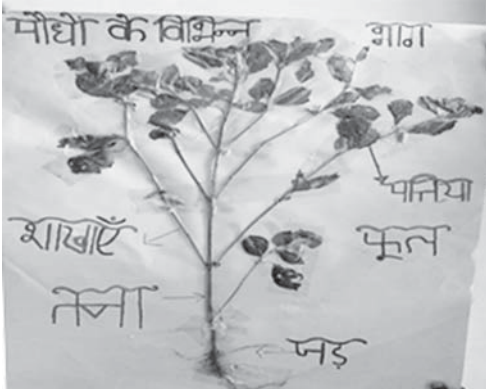 पौधों के विभिन्न भाग
पत्तिया
शाखाएँ
फूल
तना
जड़